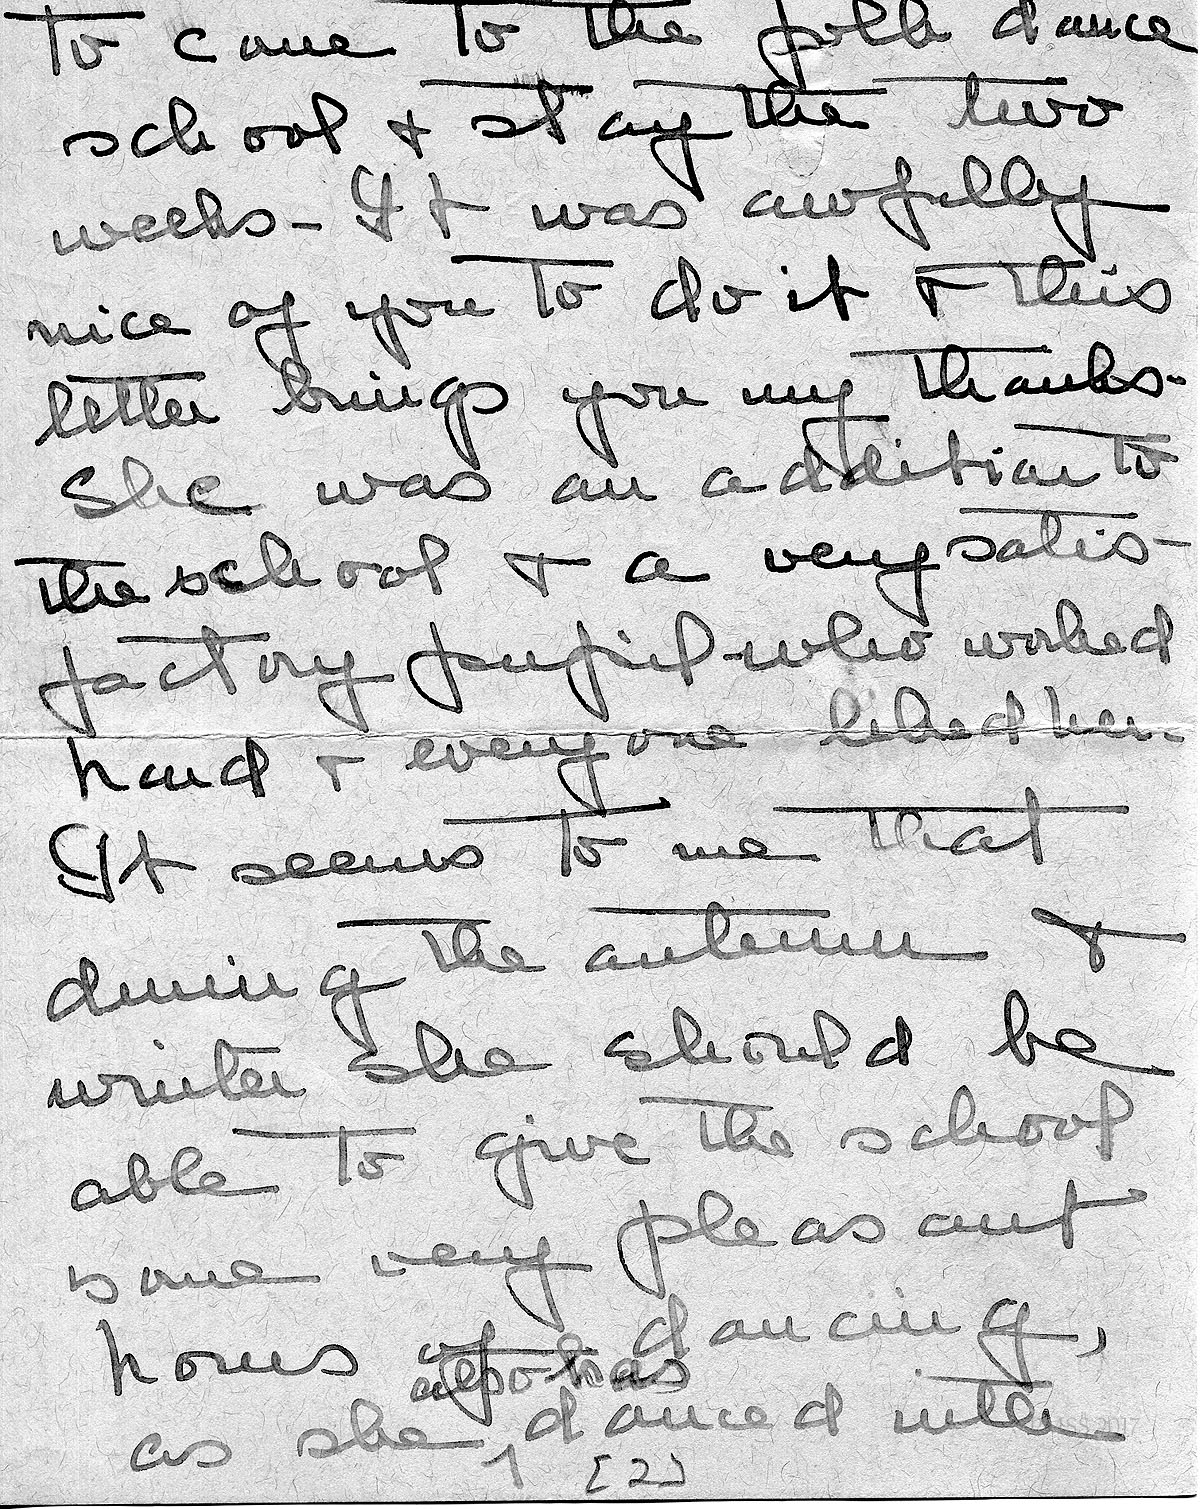 to come to the folk dance
school & stay the two
weeks - It was awfully
nice of you to do it & this
letter brings you my thanks -
She was an addition to
the school & a very satis-
factory pupil - who worked
hard & everyone liked her.
It seems to me that
during the autumn &
winter she should be
able to give the school
some very pleasant
hours of dancing,
also has
as she ^ danced with
[2]